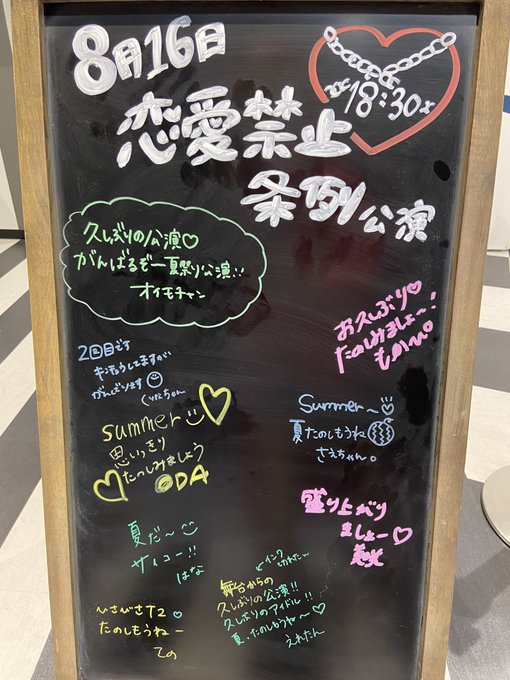 8月16日
18:30〜
恋愛禁止
条例公演
久しぶりの公演♡
がんばるぞー夏祭り公演!!
オイモチャン
お久しぶり♡
たのしみましょ〜!
2回目です
キンチョウしてますが
がんばります
くりたちゃん
summer
思いっきり
たのしみましょう
ODA
Summer〜
夏たのしもうね
さえちゃん。
盛り上がり
ましょー♡
美火
夏だ〜
サイコー!!
はな
←インク切れた
舞台からの
久しぶりの公演!!
久しぶりのアイドル!!
夏、たのしもうね〜♡
えれたん
ひさびさT2
たのしもうねー
ての